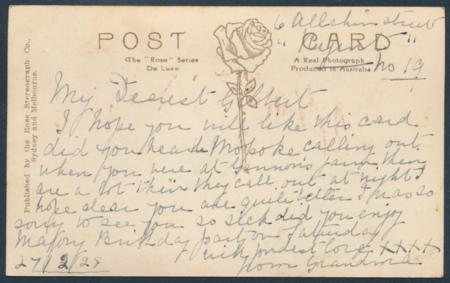 6 Allchin street
POST CARD
The "Rose" Series
De Luxe
A Real Photograph
Produced in Australia
No 19
Published by the Rose Stereograph Co.
Sydney and Melbourne.
My Dearest Gilbert
I hope you will like this card
did you hear a Mopoke calling out
when you were at Lennons farm there
are a lot their they call out at night I
hope dear you are quite better I was so
sorry to see you so sick did you enjoy
Majory Birthday party on Saturday
with fondest love xxxx
from Grandma
27/2/28